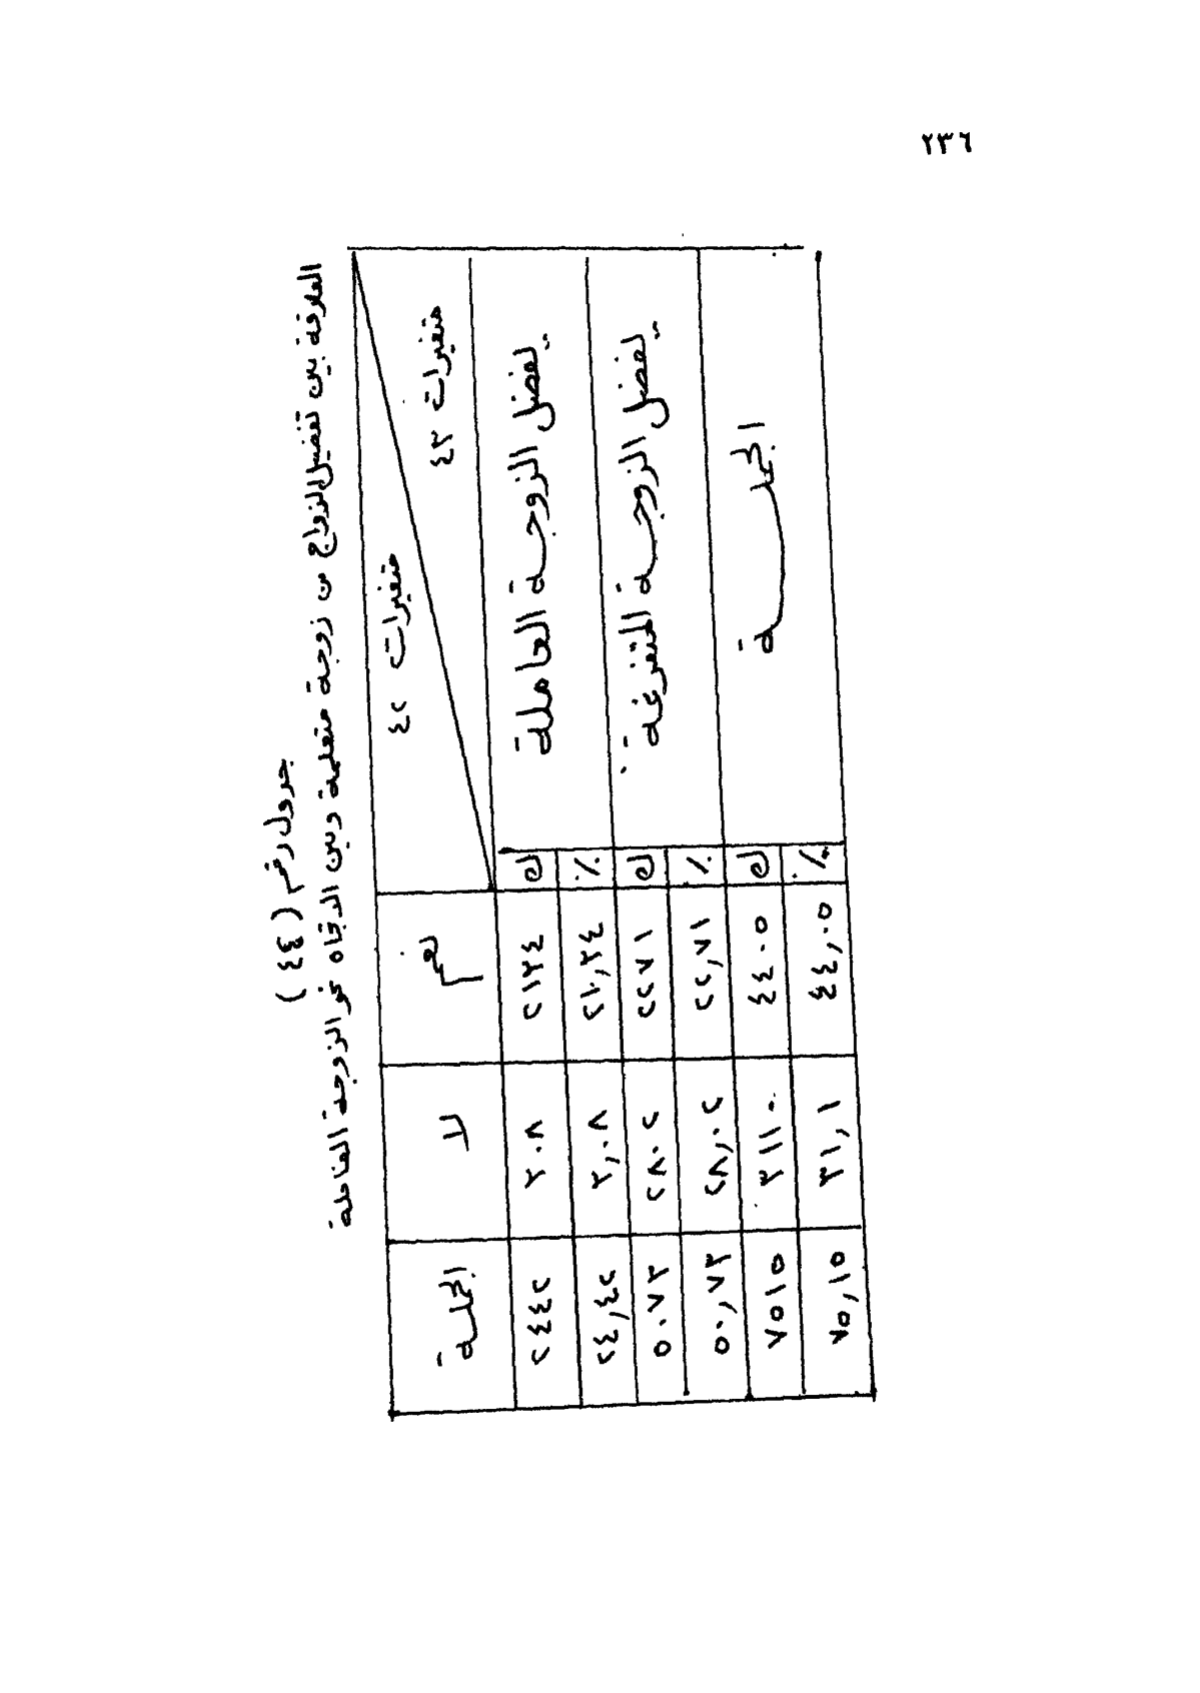 ٢٣٦
جدول رقم (٤٤)
العلاقة بين تفضيل الزواج من زوجة متعلمة وبين الاتجاه نحو الزوجة العاملة
متغيرات ٤٢
متغيرات ٤٣
نعم لا الجملة
يفضل الزوجة العاملة
ك ٢١٣٤ ٣٠٨ ٢٤٤٢
٪ ٢١,٣٤ ٣,٠٨ ٢٤,٤٢
يفضل الزوجة المتفرغة
ك ٢٢٧١ ٢٨٠٢ ٥٠٧٣
٪ ٢٢,٧١ ٢٨,٠٢ ٥٠,٧٣
الجملة
ك ٤٤٠٥ ٣١١٠ ٧٥١٥
٪ ٤٤,٠٥ ٣١,١ ٧٥,١٥